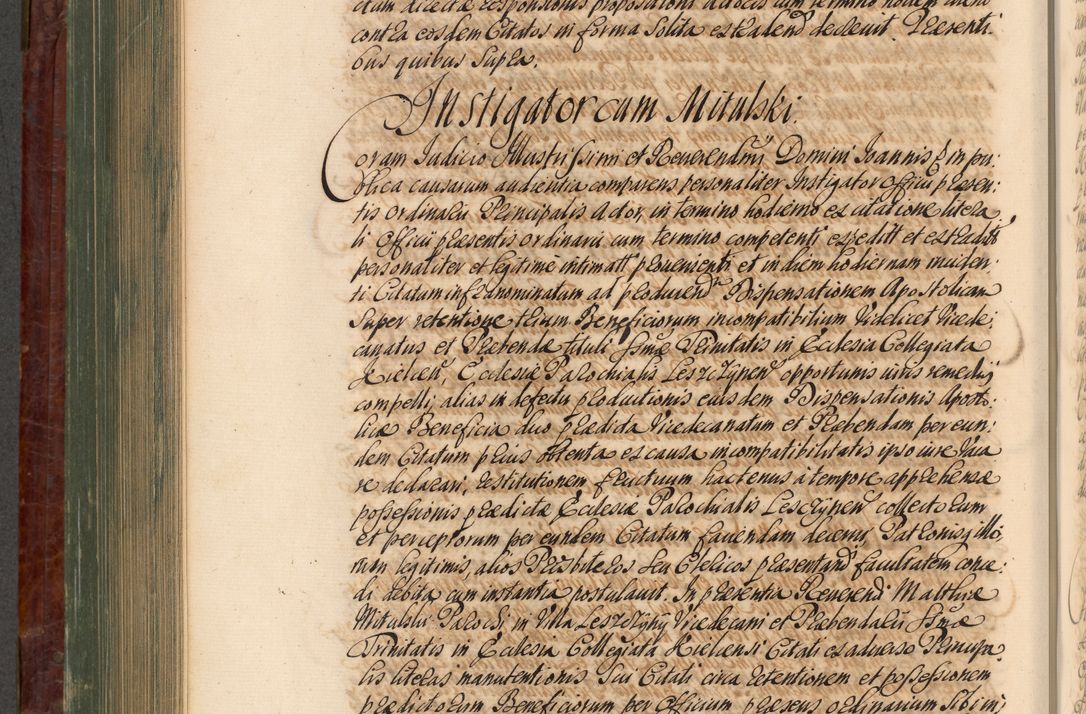 contra eosdem Citatos in forma solita extraden̄ decrevit. Præsenti
bus quibus supra.
Instigator cum Mitulski.
Coram Judicio Illustrissimi et Reverendm̄i Domini Joannis in pu:
blica causarum audientia comparens personaliter Instigator Officii præsen:
tis ordinarii Principalis Actor, in termino hodierno ex citatione litera
li Officii præsentis ordinarii cum termino competenti expedītt et extradit
personaliter et legitime intimatt provenienti et in diem hodiernam inciden
ti Citatum infranominatum ad producen̄ Dispensationem Apostolicam
super retentione trium Beneficiorum incompatibilium videlicet Vicede:
canatus et Præbendæ tituli Ssmæ Trinitatis in Ecclesia Collegiata
Kielcen̄, Ecclesiæ Parochialis Leszczynen̄ opportunis juris remediis
compelli, alias in defectu productionis ejusdem Dispensationis Aposto:
licæ Beneficia duo prædicta Vicedecanatum et Præbendam per eun:
dem Citatum prius obtenta ex causa incompatibilitatis ipso jure vaca
re declarari, restitutionem fructuum hactenus à tempore apprehensæ
possessionis prædictæ Ecclesiæ Parochialis Leszczynen̄ collectorum
et perceptorum per eundem Citatum faciendam decerni, Patronisq illo:
rum legitimis, alios Presbiteros seu Clericos præsentand̄i facultatem conce:
di debita cum instantia postulavit. In præsentia Reverendi Matthiæ
Mitulski Parochi, in Villa Leszczyny Vicedecani et Præbendarii Ssmæ
Trinitatis in Ecclesia Collegiata Kielcensi Citati ex adverso Principa
lis literas manutentionis sui Citati circa retentionem et possessionem
prædictorum Beneficiorum per Officium præsens ordinarium sibi in: